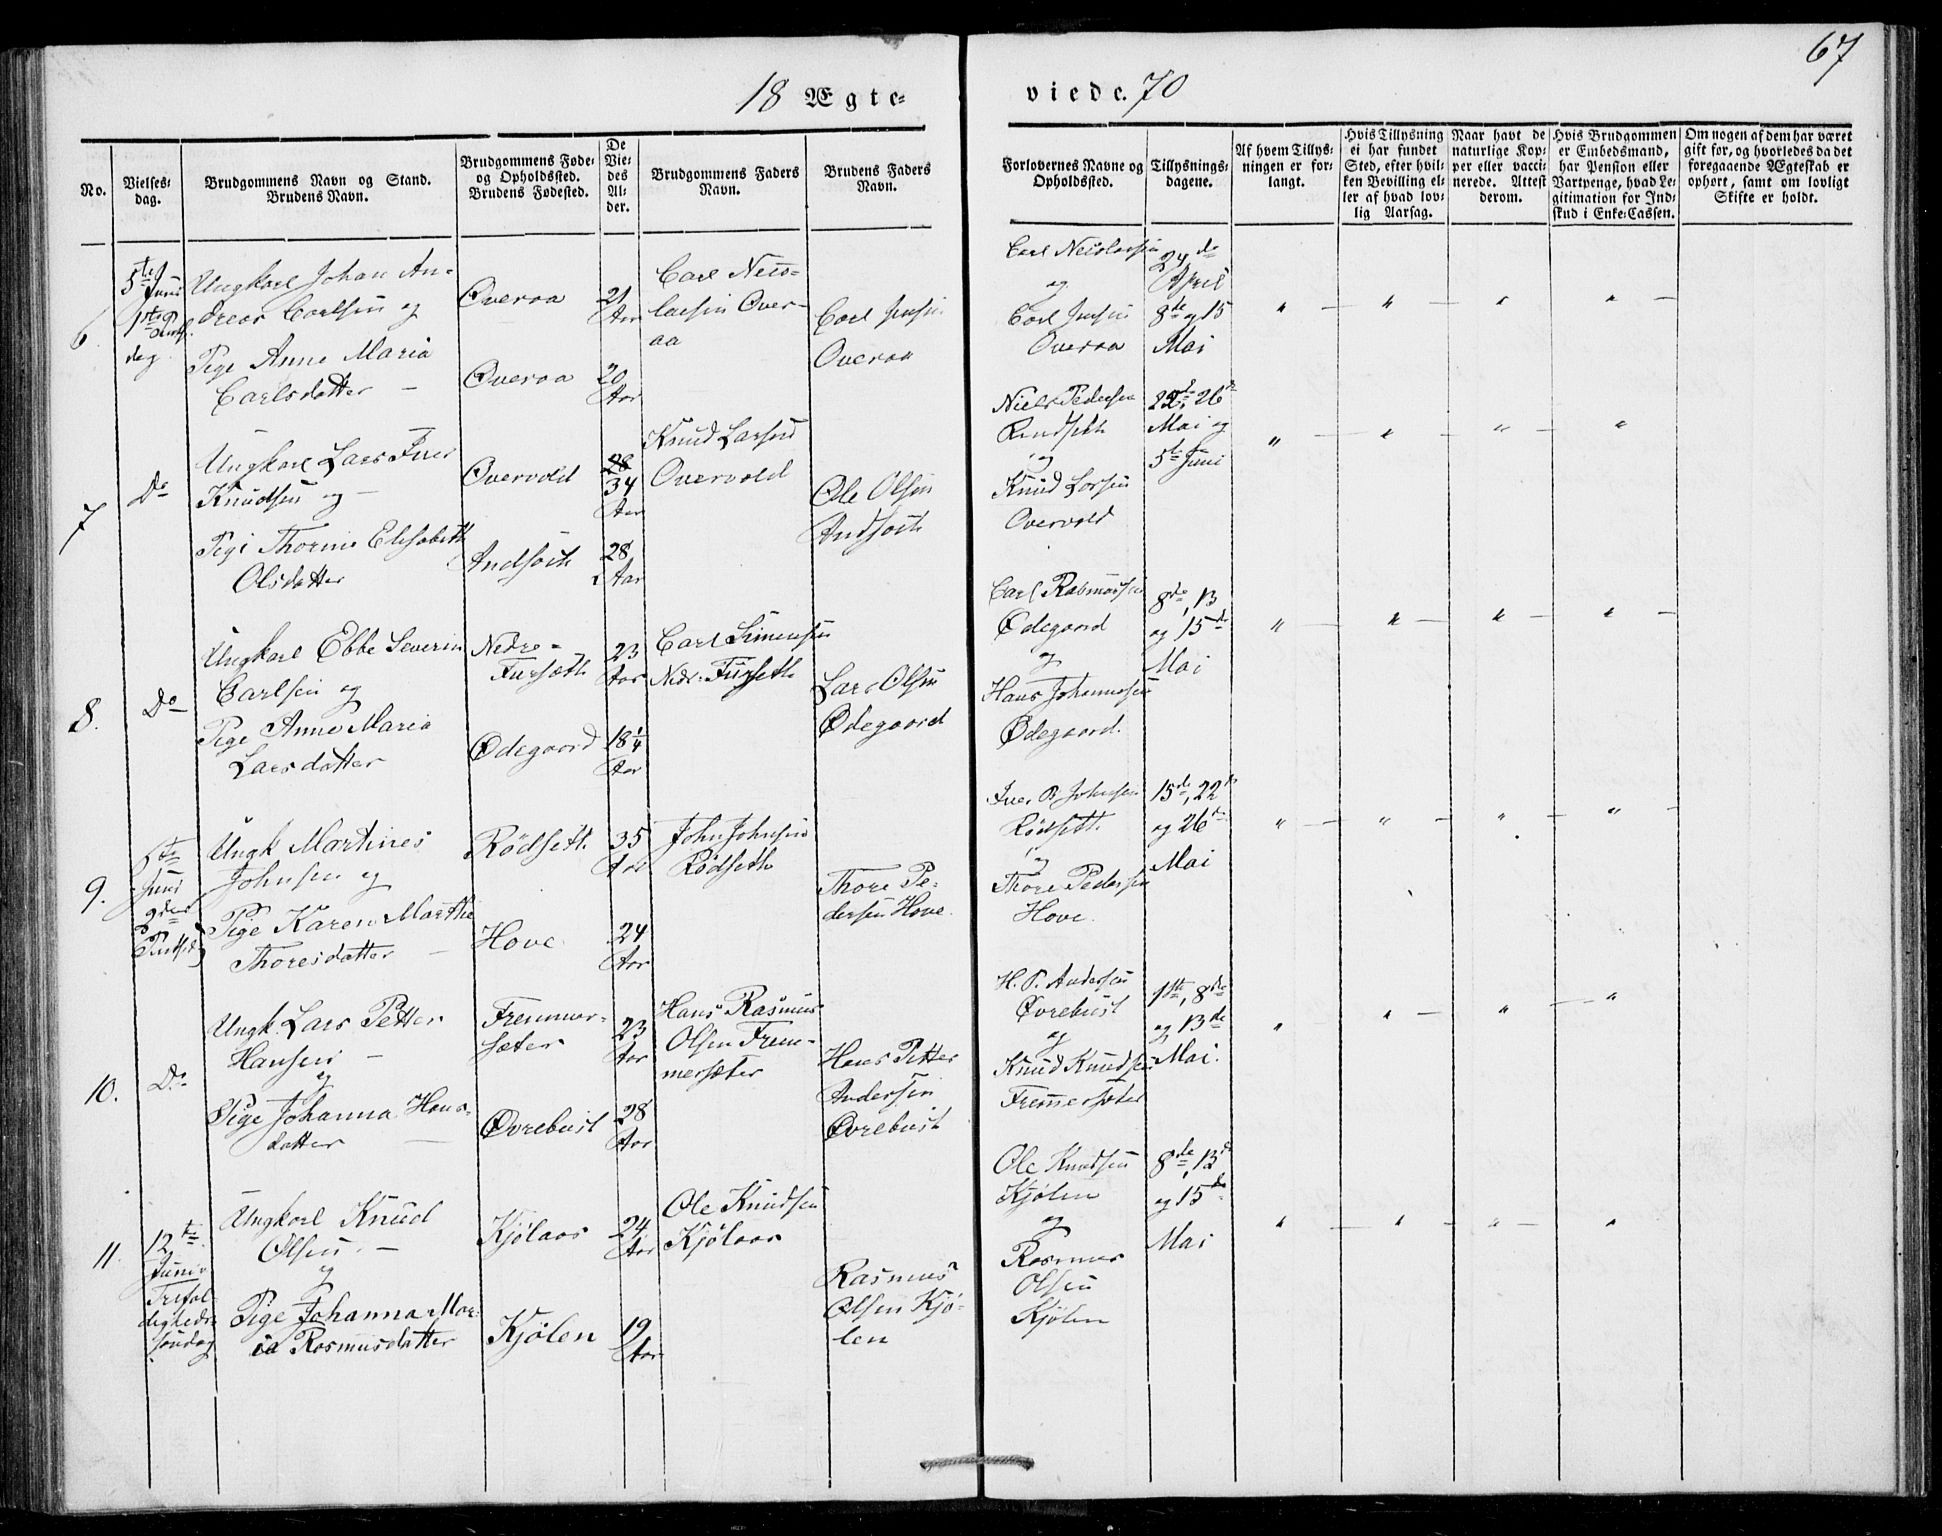 67
18 Ægte-
viede. 70
No.
Vielses-
dag.
Brudgommens Navn og Stand.
Brudens Navn.
Brudgommens Føde-
og Opholdssted.
Brudens Fødested.
De
Vie-
des
Al-
der.
Brudgommens Faders
Navn.
Brudens Faders
Navn.
Forlovernes Navne og
Opholdssted.
Tillysnings-
dagene.
Af hvem Tillys-
ningen er for-
langt.
Hvis Tillysning
ei har fundet
Sted, efter hvil-
ken Bevilling el-
ler af hvad lov-
lig Aarsag.
Naar havt de
naturlige Kop-
per eller vacci-
nerede. Attest
derom.
Hvis Brudgommen
er Embedsmand,
har Pension eller
Vartpenge, hvad Le-
gitimation for Ind-
skud i Enke-Cassen.
Om nogen af dem har været
gift før, og hvorledes da det
foregaaende Ægteskab er
ophørt, samt om lovligt
Skifte er holdt.
6
5te Juni
1ste
dag
Ungkarl Johan An-
dreas Carlsen og
Pige Anne Maria
Carlsdatter –
Overaa
Overaa
21
Aar
20
Aar
Carl Nico-
laisen Over-
aa
Carl Jensen
Overaa
Carl Nicolaisen
og
Carl Jensen
Overaa
24de
April
8de og 15
Mai
7
Do
Ungkarl Lars Iver
Knudsen og –
Pige Thorine Elisabeth
Olsdatter
Overvold
Andsæth
28
34
Aar
28
Aar
Knud Larsen
Overvold
Ole Olsen
Andsæth
Niels Pedersen
og
Knud Larsen
Overvold
22de, 26de
Mai og
5te Juni
8.
Do
Ungkarl Ebbe Severin
Carlsen og
Pige Anne Maria
Larsdatter
Nedre-
Fursæth
Ødegaard
23
Aar
18 1/4
Aar
Carl Simensen
Nedr. Furseth
Lars Olsen
Ødegaard
Carl Rasmussen
Ødegaard
og
Hans Johannesen
Ødegaard.
8de, 13
og 15de
Mai
9.
6te
Juni
2den
Ungk Martines
Johnsen og
Pige Karen Marthe
Thoresdatter –
Rödseth
Hove
35
Aar
24
Aar
John Johnsen
Rödseth
Thore Pe-
dersen Hove.
Iver P. Johnsen
Rødseth
og
Thore Pedersen
Hove.
15de, 22de
og 26de
Mai
10.
Do
Ungk. Lars Petter
Hansen –
og
Pige Johanna Hans-
datter –
Fremmer-
sæter
Øvrebust
23
Aar
28
Aar
Hans Rasmus
Olsen Frem-
mersæter
Hans Petter
Andersen
Øvrebust
H. P. Andersen
Øvrebust
og
Knud Knudsen
Fremmersæter
1ste, 8de
og 13de
Mai.
11.
12te
Juni
Trefol-
digheds-
søndag
Ungkarl Knud
Olsen. –
og
Pige Johanna Mar-
ia Rasmusdatter
Kjølaas
Kjølen
24
Aar
19
Aar
Ole Knudsen
Kjølaas
Rasmus
Olsen Kjø-
len
Ole Knudsen
Kjølen
og
Rasmus
Olsen
Kjølen
8de, 13de
og 15de
Mai